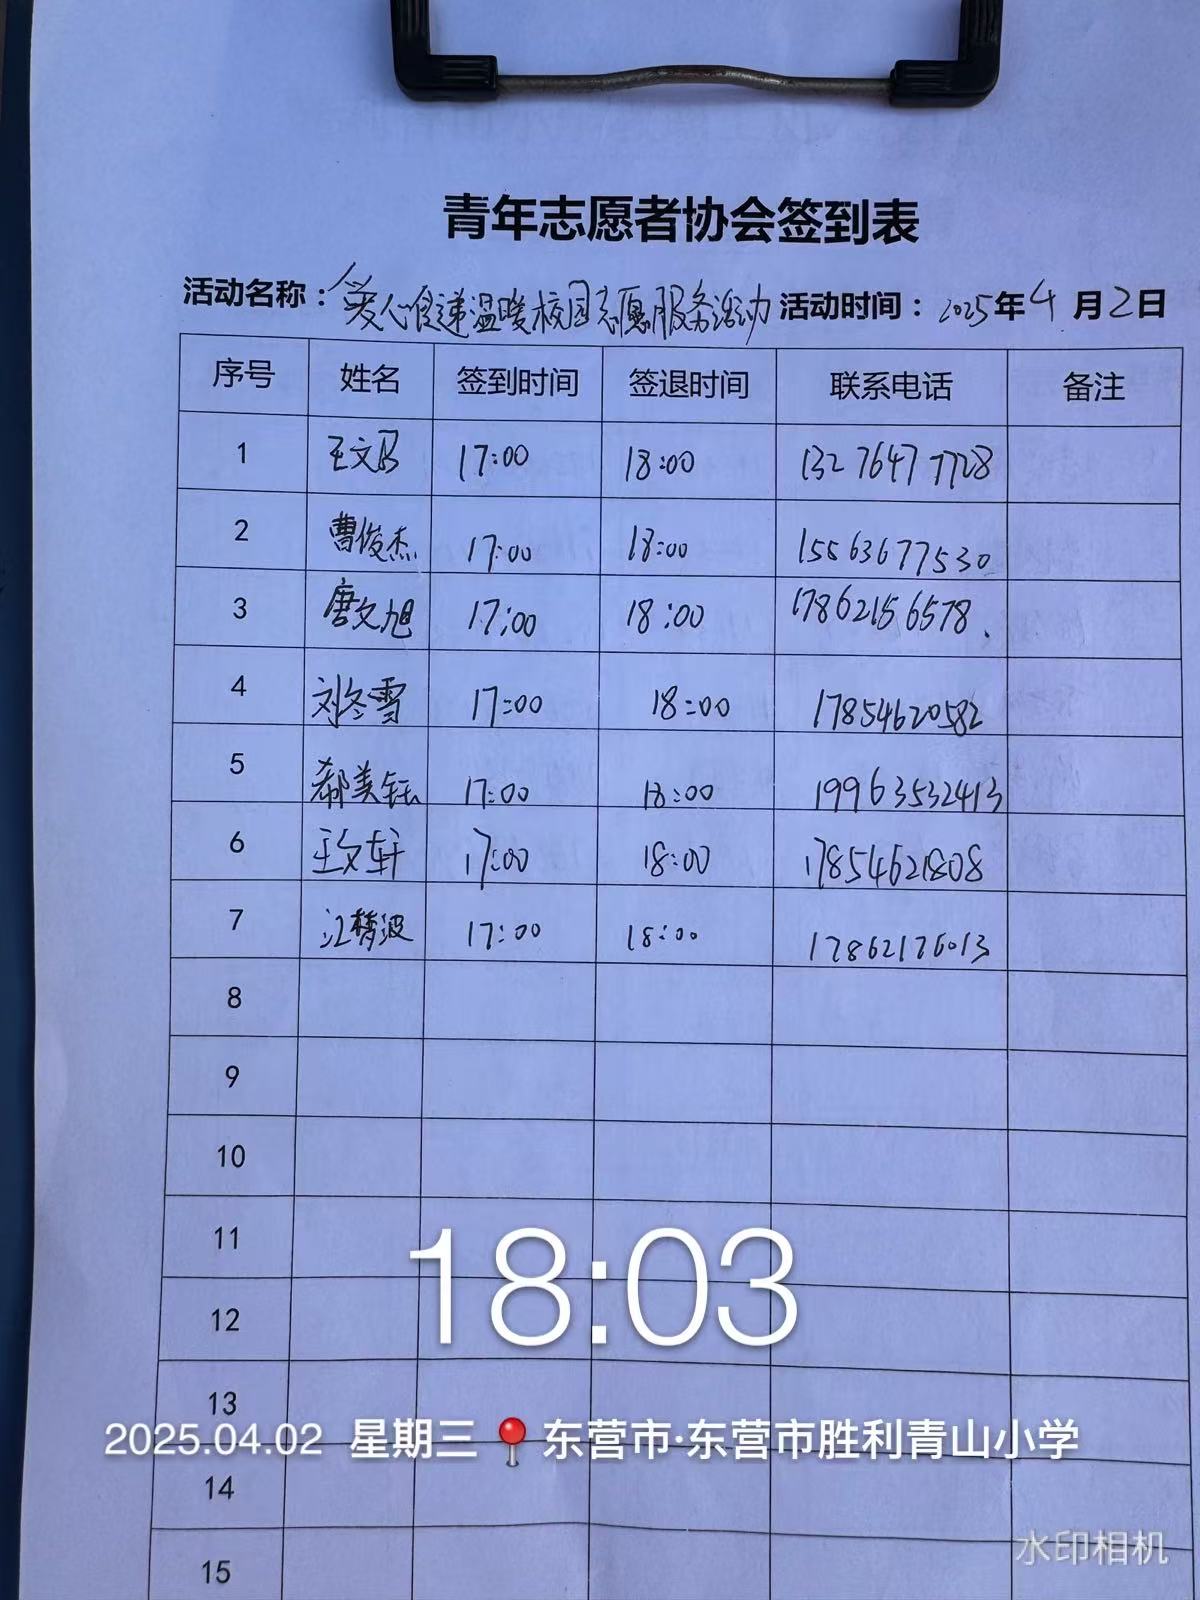 青年志愿者协会签到表
活动名称：爱心传递温暖校园志愿服务活动 活动时间：2025年4月2日
序号 姓名 签到时间 签退时间 联系电话 备注
1 王文 17:00 18:00 13276477728
2 曹俊杰 17:00 18:00 15563677530
3 唐文旭 17:00 18:00 17862156578.
4 刘冬雪 17:00 18:00 17854620582
5 郝美钰 17:00 18:00 19963532413
6 王文轩 17:00 18:00 17854621808
7 江梦波 17:00 18:00 17862176013
8
9
10
11
18:03
12
13
2025.04.02 星期三 东营市·东营市胜利青山小学
14
水印相机
15